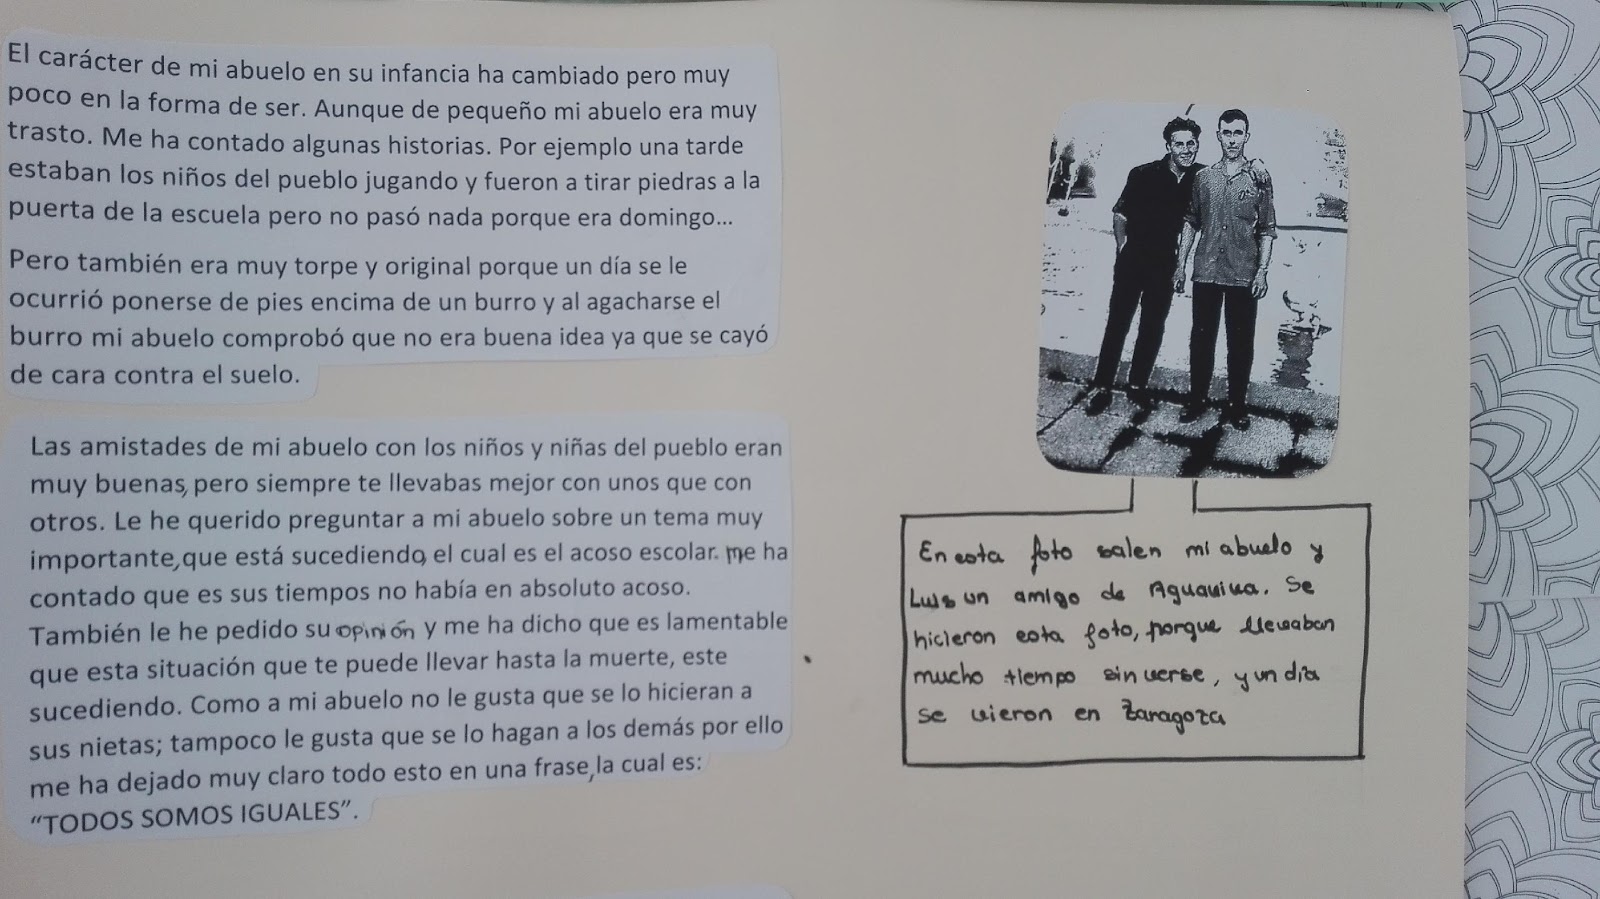 El carácter de mi abuelo en su infancia ha cambiado pero muy
poco en la forma de ser. Aunque de pequeño mi abuelo era muy
trasto. Me ha contado algunas historias. Por ejemplo una tarde
estaban los niños del pueblo jugando y fueron a tirar piedras a la
puerta de la escuela pero no pasó nada porque era domingo...
Pero también era muy torpe y original porque un día se le
ocurrió ponerse de pies encima de un burro y al agacharse el
burro mi abuelo comprobó que no era buena idea ya que se cayó
de cara contra el suelo.
Las amistades de mi abuelo con los niños y niñas del pueblo eran
muy buenas, pero siempre te llevabas mejor con unos que con
otros. Le he querido preguntar a mi abuelo sobre un tema muy
importante, que está sucediendo, el cual es el acoso escolar. me ha
contado que es sus tiempos no había en absoluto acoso.
También le he pedido su opinión y me ha dicho que es lamentable
que esta situación que te puede llevar hasta la muerte, este
sucediendo. Como a mi abuelo no le gusta que se lo hicieran a
sus nietas; tampoco le gusta que se lo hagan a los demás por ello
me ha dejado muy claro todo esto en una frase, la cual es:
“TODOS SOMOS IGUALES”.
En esta foto salen mi abuelo y
Luis un amigo de Aguaviva. Se
hicieron esta foto, porque llevaban
mucho tiempo sin verse, y un día
se vieron en Zaragoza